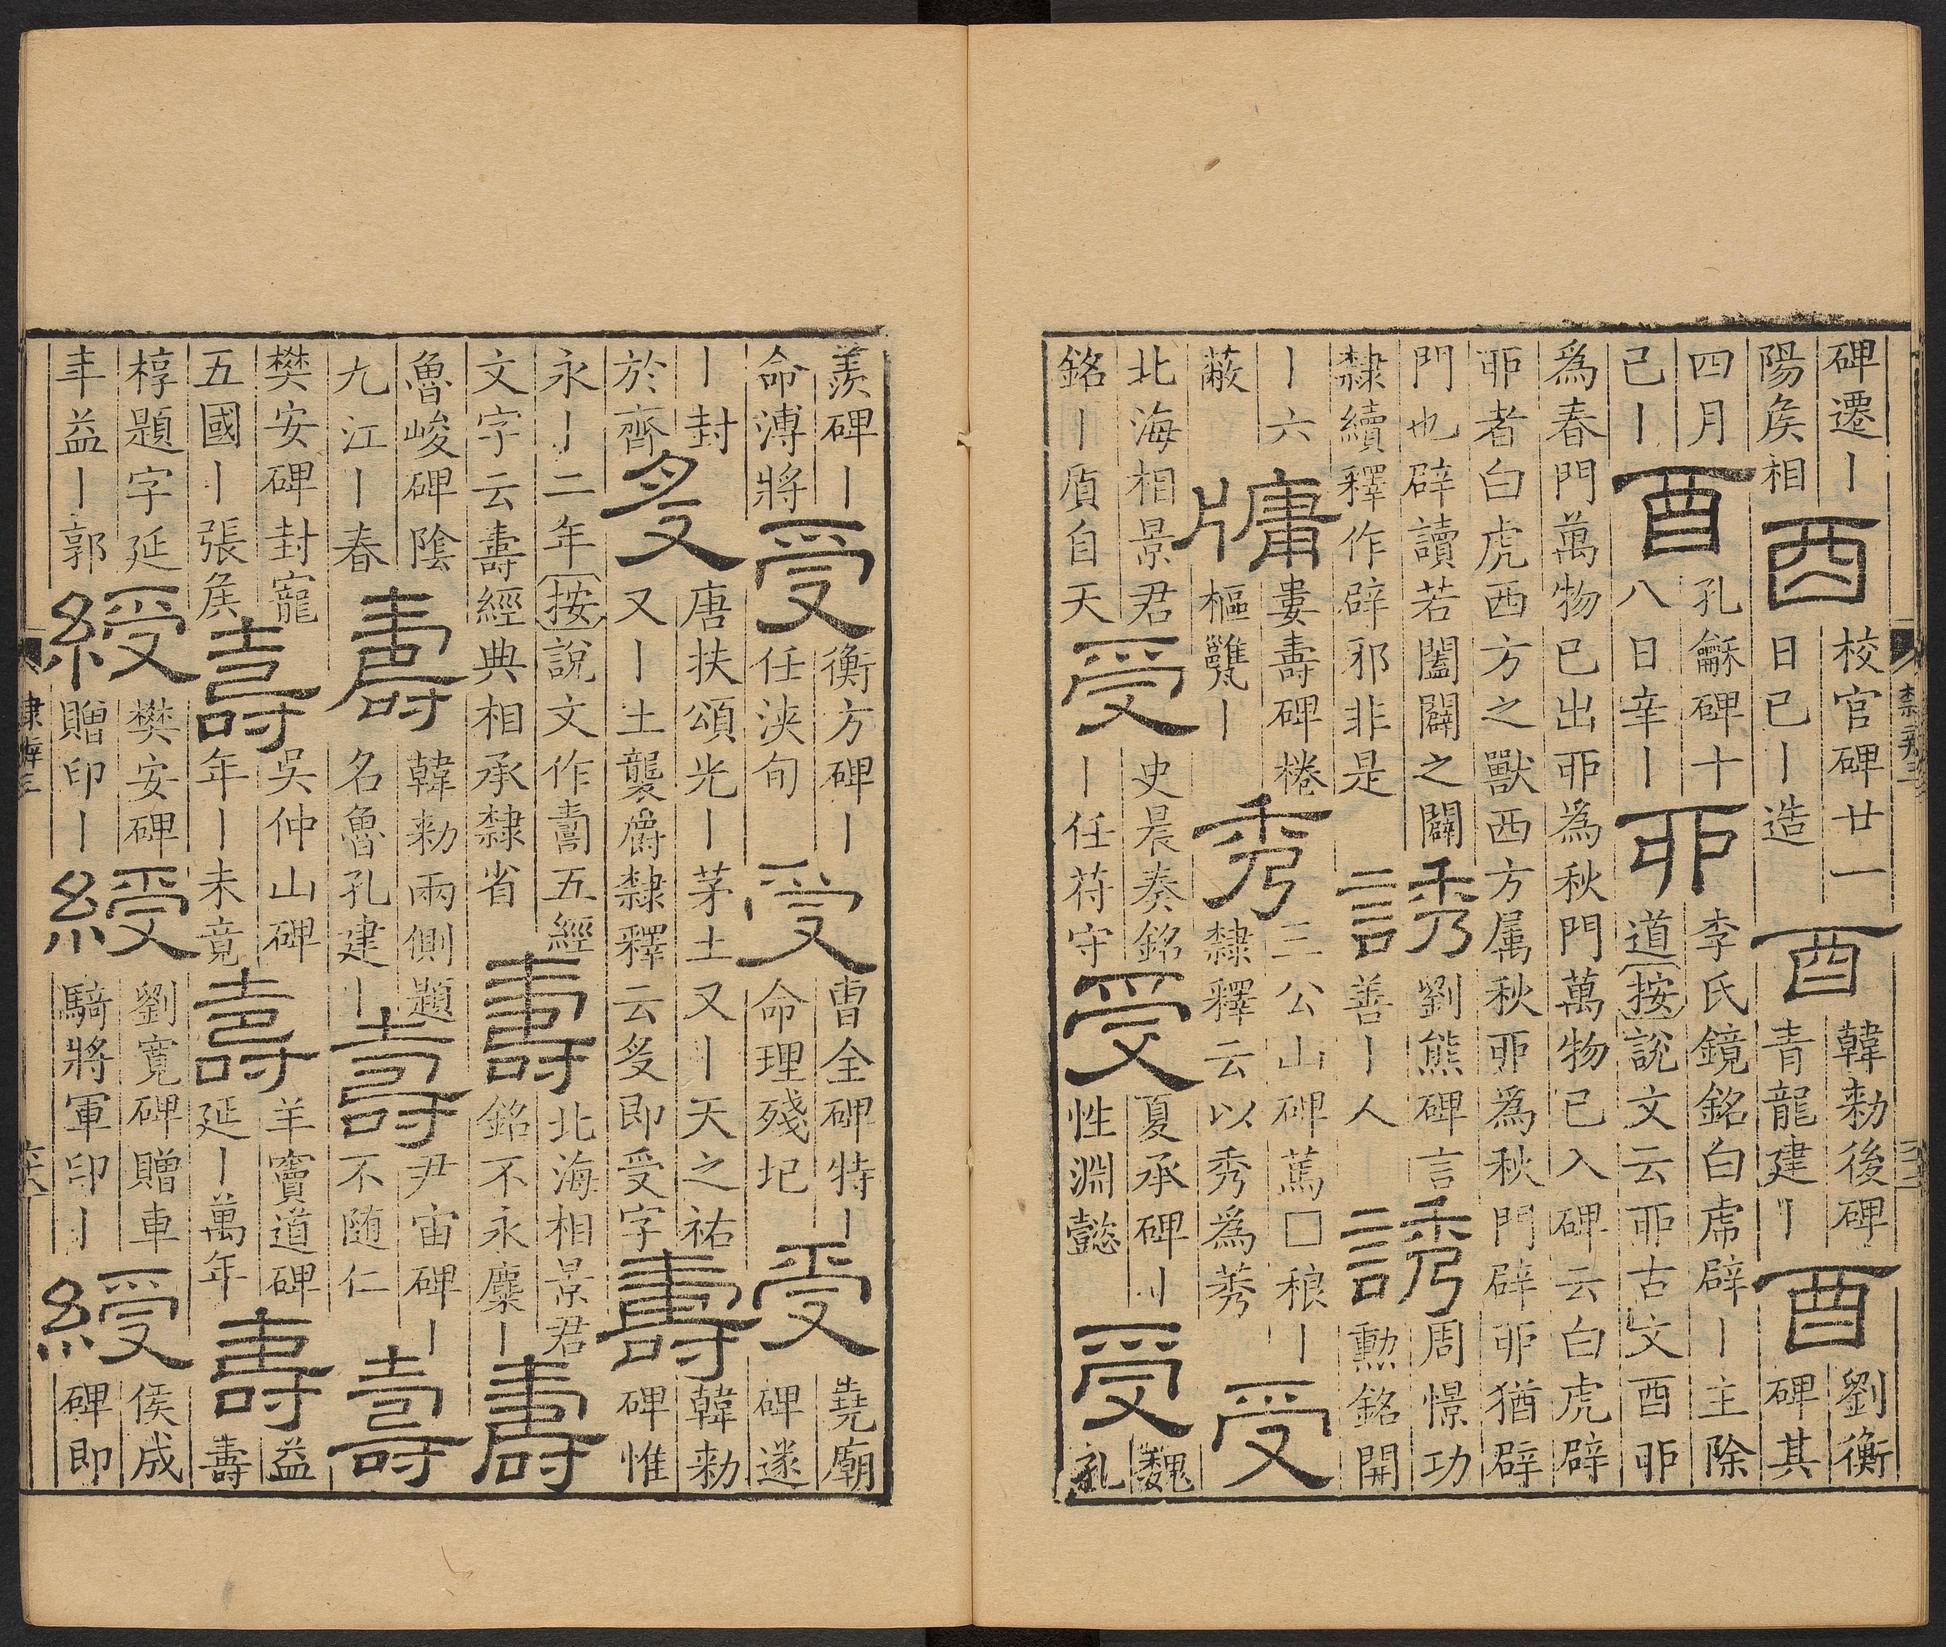 碑遷丨
陽矦相
酉
校官碑廿一
日已丨造
酉
韓勑後碑
青龍建丨
酉
劉衡
碑其
四月
已丨
酉
孔龢碑十
八日辛丨
丣
李氏鏡銘白虎辟丨主除
道按說文云丣古文酉丣
為春門萬物已出丣為秋門萬物已入碑云白虎辟
丣者白虎西方之獸西方属秋丣為秋門辟丣猶辟
門也辟讀若闔闢之闢
隸續釋作辟邪非是
誘
劉熊碑言
善丨人
誘
周憬功
勳銘開
丨六
蔽
牗
婁壽碑棬
樞甕丨
秀
三公山碑蔿□稂丨
隸釋云以秀為莠
受
北海相景君
銘丨質自天
受
史晨奏銘
丨任苻守
受
夏承碑丨
性淵懿
受
魏
孔
羨碑丨
命溥將
受
衡方碑丨
任浹旬
受
曹全碑特丨
命理殘圮
受
堯廟
碑遂
丨封
於齊
受
唐扶頌光丨茅土又丨天之祐
又丨土襲爵隸釋云受即受字
壽
韓勑
碑惟
永丨二年按說文作壽五經
文字云壽經典相承隸省
壽
北海相景君
銘不永麋丨
壽
魯峻碑陰
九江丨春
壽
韓勑兩側題
名魯孔建丨
壽
尹宙碑丨
不随仁
壽
樊安碑封寵
五國丨張矦
壽
吳仲山碑
年丨未竟
壽
羊竇道碑
延丨萬年
壽
益
壽
椁題字延
年益丨郭
綬
樊安碑
贈印丨
綬
劉寬碑贈車
騎將軍印丨
綬
侯成
碑即